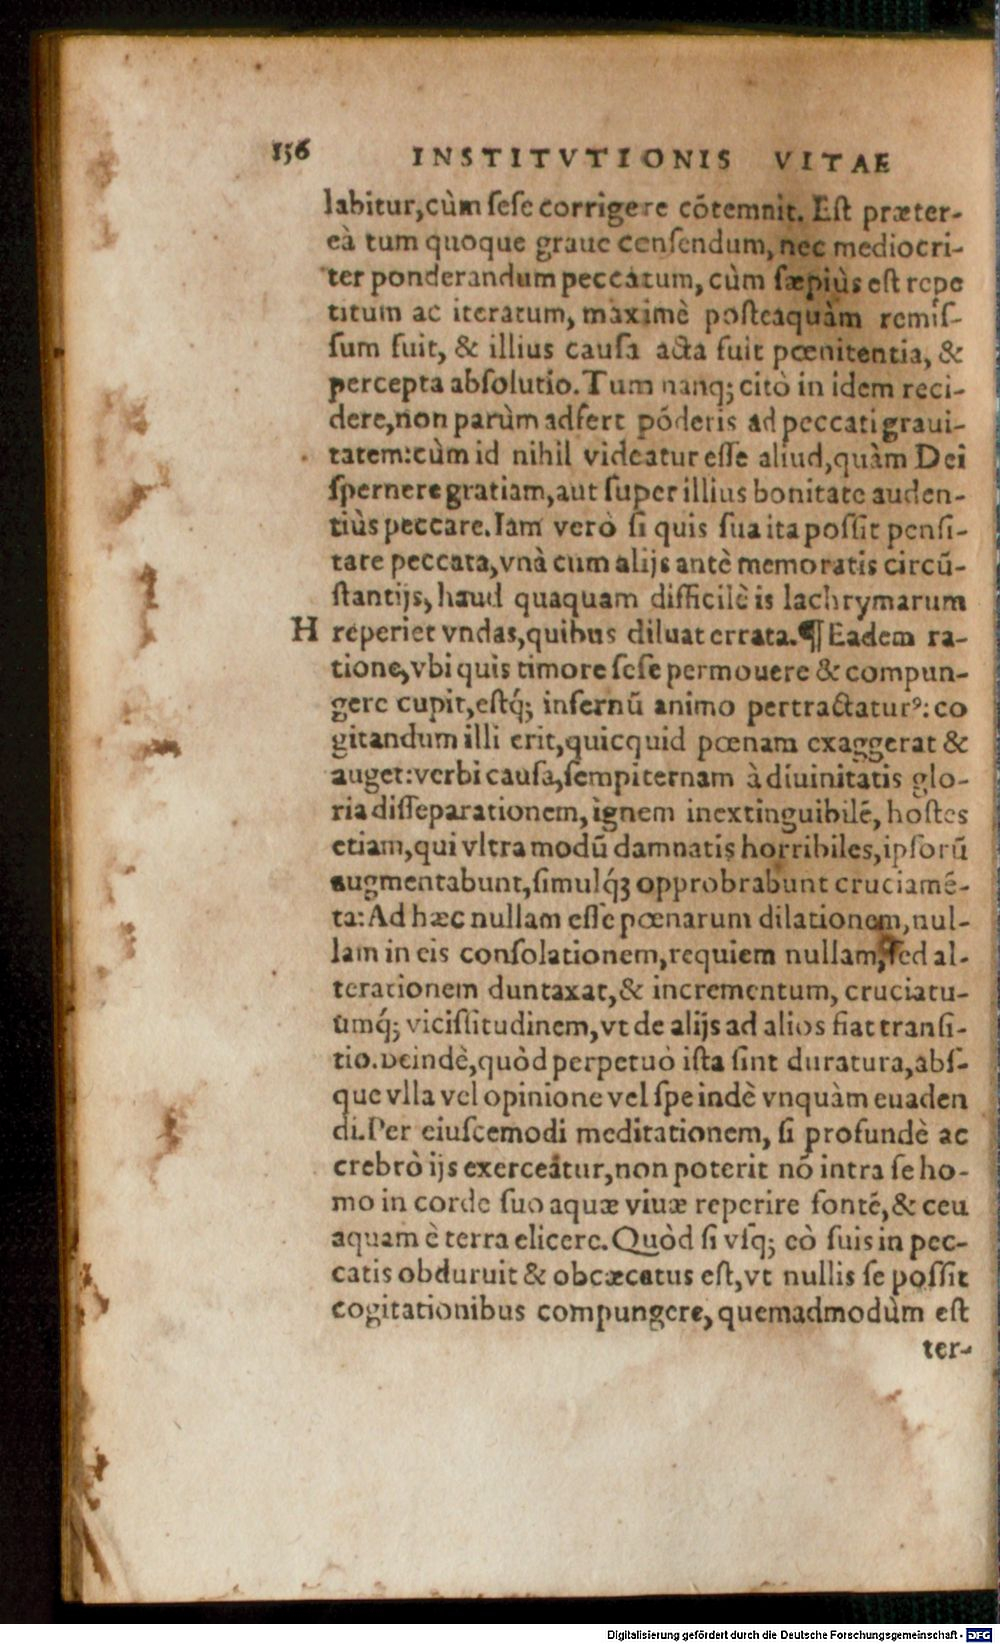 156 INSTITVTIONIS VITAE
labitur,cùm ſeſe corrigere cõtemnit. Eſt præter-
eà tum quoque graue cenſendum, nec mediocri-
ter ponderandum peccatum, cùm ſæpiùs eſt repe
titum ac iteratum, maximè poſteaquàm remiſ-
ſum fuit, & illius cauſa acta fuit pœnitentia, &
percepta abſolutio. Tum nanq; citò in idem reci-
dere,non parùm adfert põderis ad peccati graui-
tatem:cùm id nihil videatur eſſe aliud,quàm Dei
ſpernere gratiam,aut ſuper illius bonitate auden-
tiùs peccare. Iam verò ſi quis ſua ita poſſit penſi-
tare peccata,vnà cum alijs antè memoratis circũ-
ſtantijs, haud quaquam difficilè is lachrymarum
H reperiet vndas,quibus diluat errata.¶ Eadem ra-
tione,vbi quis timore ſeſe permouere & compun-
gere cupit,eſtq́; infernũ animo pertractaturꝰ: co
gitandum illi erit,quicquid pœnam exaggerat &
auget:verbi cauſa,ſempiternam à diuinitatis glo-
ria diſſeparationem, ignem inextinguibilẽ, hoſtes
etiam,qui vltra modũ damnatis horribiles,ipſorũ
augmentabunt,ſimulq́ꝫ opprobrabunt cruciamẽ-
ta: Ad hæc nullam eſſe pœnarum dilationem,nul-
lam in eis conſolationem,requiem nullam,ſed al-
terationem duntaxat,& incrementum, cruciatu-
ũmq́; viciſſitudinem,vt de alijs ad alios fiat tranſi-
tio. Deindè,quòd perpetuò iſta ſint duratura,abſ-
que vlla vel opinione vel ſpe indè vnquàm euaden
di. Per eiuſcemodi meditationem, ſi profundè ac
crebrò ijs exerceatur,non poterit nõ intra ſe ho-
mo in corde ſuo aquæ viuæ reperire fontẽ,& ceu
aquam è terra elicere. Quòd ſi vſq; eò ſuis in pec-
catis obduruit & obcæcatus eſt,vt nullis ſe poſſit
cogitationibus compungere, quemadmodùm eſt
ter-
Digitalisierung gefördert durch die Deutsche Forschungsgemeinschaft - DFG